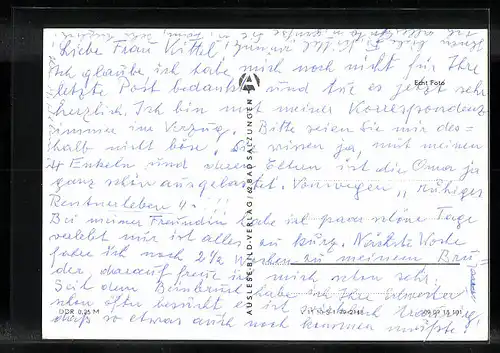 Liebe Frau Kittel!
Ich glaube, ich habe mich noch nicht für Ihre
letzte Post bedankt und tue es jetzt sehr
herzlich. Ich bin mit meiner Korrespondenz
immer im Verzug. Bitte seien Sie mir des-
halb nicht böse. Sie wissen ja, mit meinen
4 Enkeln und deren Eltern ist die Oma ja
ganz schön ausgelastet. Von wegen „ruhiges
Rentnerleben"!
Bei meiner Freundin habe ich paar schöne Tage
verlebt nur ist alles zu kurz. Nächste Woche
fahre ich noch 2 1/2 Wochen zu meinem Bru-
der darauf freue ich mich schon sehr.
Seit dem Beinbruch habe ich Ihre Schwester
schon öfter besucht es ist
daß so etwas auch noch kommen mußte!
Echt Foto
AUSLESE-BILD-VERLAG / 62 BAD SALZUNGEN
DDR 0,25 M